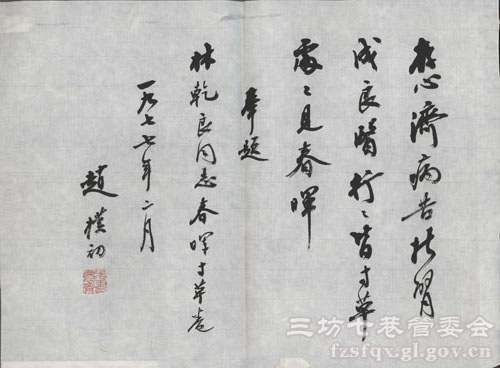 存心济病苦技习
成良医行々皆寸草
处々见春晖
奉题
林乾良同志春晖寸草卷
一九七七年二月
赵朴初
三坊七巷管委会
fzsfqx.gl.gov.cn